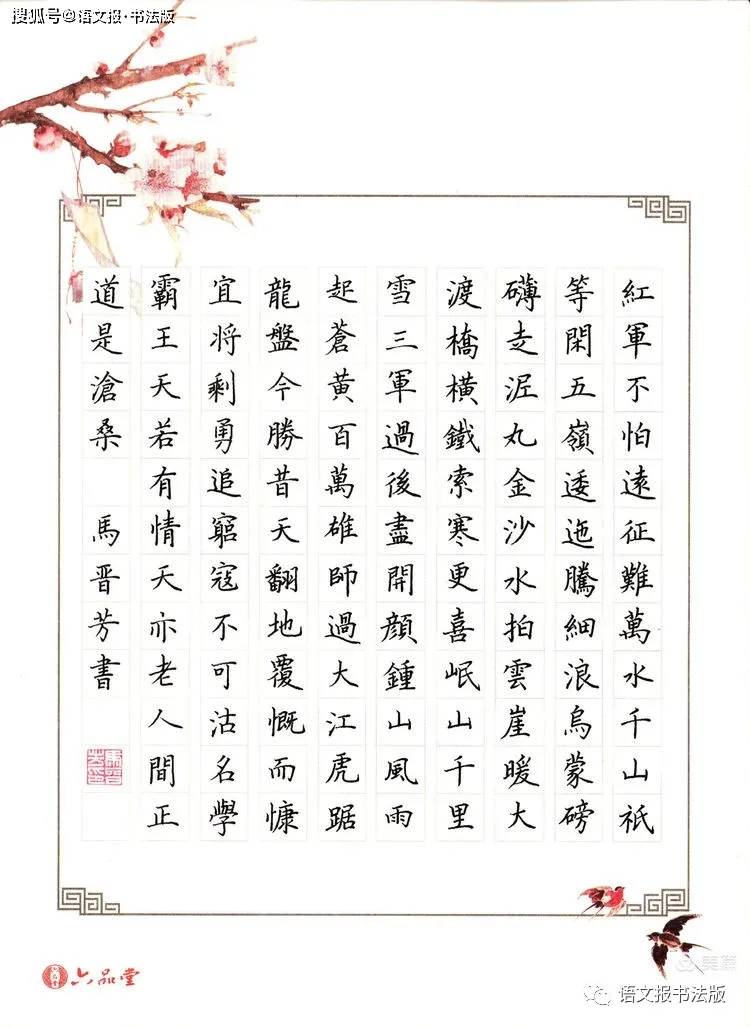 搜狐号@语文报·书法版
紅軍不怕遠征難萬水千山祇
等閑五嶺逶迤騰細浪烏蒙磅
礴走泥丸金沙水拍雲崖暖大
渡橋橫鐵索寒更喜岷山千里
雪三軍過後盡開顏鍾山風雨
起蒼黃百萬雄師過大江虎踞
龍盤今勝昔天翻地覆慨而慷
宜将剩勇追窮寇不可沽名學
霸王天若有情天亦老人間正
道是滄桑 馬晋芳書
六品堂
美篇
语文报书法版